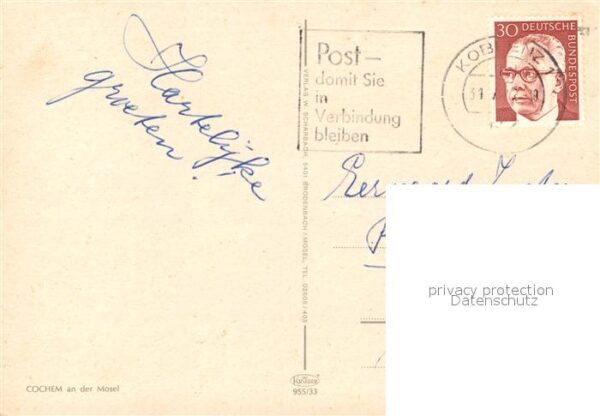 Hartelijke
groeten!
Post –
damit Sie
in
Verbindung
bleiben
30 DEUTSCHE
BUNDESPOST
KOBLENZ
31.
VERLAG W. SCHARBACH, 5401 BRODENBACH / MOSEL, TEL. 02605 / 403
privacy protection
Datenschutz
COCHEM an der Mosel
Krüger
955/33